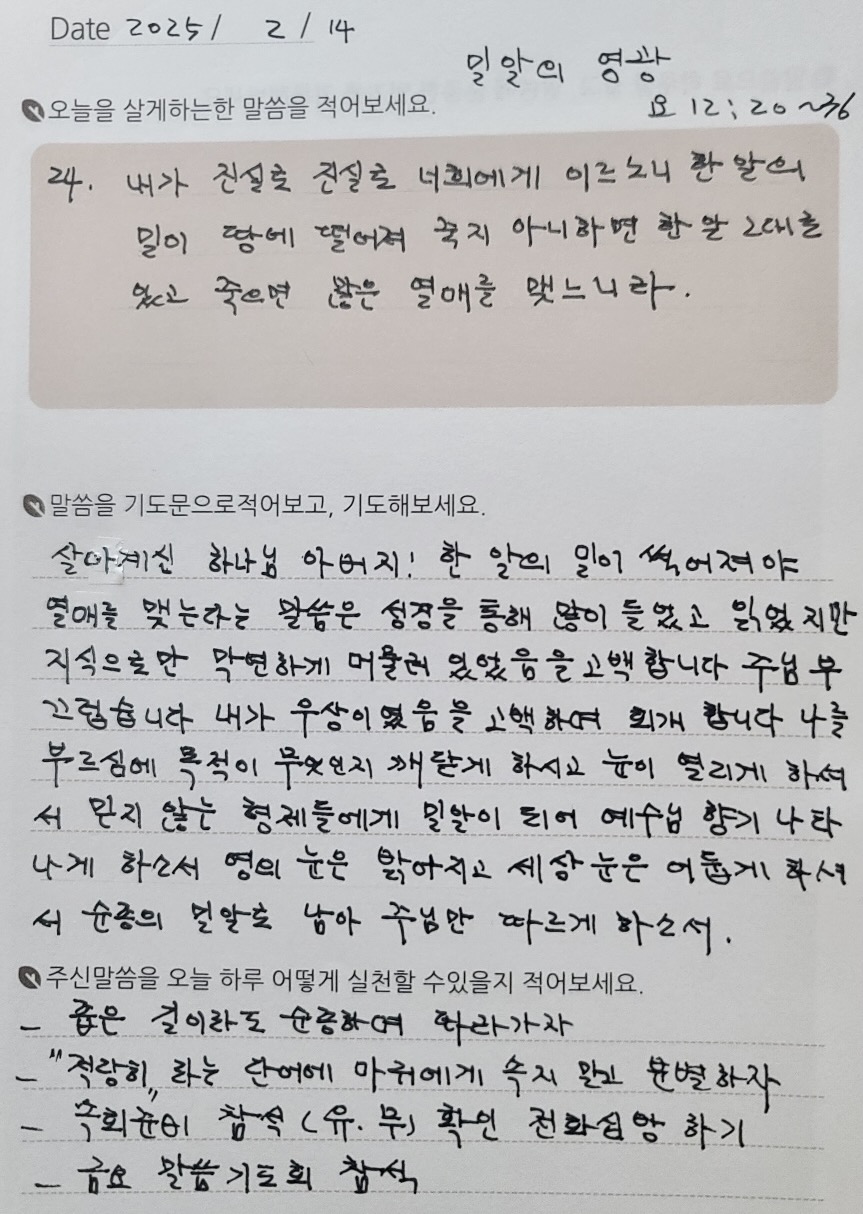 Date 2025/ 2/14
밀알의 영광
오늘을 살게하는한 말씀을 적어보세요.
요 12:20~36
24. 내가 진실로 진실로 너희에게 이르노니 한 알의
밀이 땅에 떨어져 죽지 아니하면 한 알 그대로
있고 죽으면 많은 열매를 맺느니라.
말씀을 기도문으로적어보고, 기도해보세요.
살아계신 하나님 아버지! 한 알의 밀이 썩어져야
열매를 맺는라는 말씀은 성경을 통해 많이 들었고 읽었지만
지식으로만 막연하게 머물러 있었음을 고백합니다 주님 부
끄럽습니다 내가 우상이었음을 고백하며 회개 합니다 나를
부르심에 목적이 무엇인지 깨닫게 하시고 눈이 열리게 하셔
서 믿지 않는 형제들에게 밀알이 되어 예수님 향기 나타
나게 하소서 영의 눈은 밝아지고 세상 눈은 어둡게 하셔
서 순종의 밀알로 남아 주님만 따르게 하소서.
주신말씀을 오늘 하루 어떻게 실천할 수있을지 적어보세요.
- 좁은 길이라도 순종하며 따라가자
- "적당히" 라는 단어에 마귀에게 속지 말고 분별하자
- 속회준비 참석 (유.무) 확인 전화심방 하기
- 금요 말씀기도회 참석